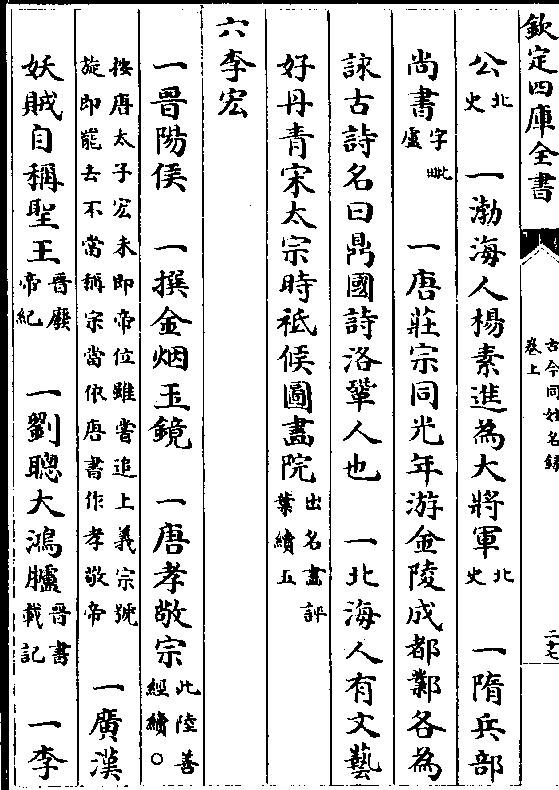 欽定四庫全書
古今同姓名錄
卷上
二十七
公北史 一渤海人楊素進為大將軍北史 一隋兵部
尚書字毗盧 一唐莊宗同光年游金陵成都鄴各為
詠古詩名曰鼎國詩洛鞏人也 一北海人有文藝
好丹青宋太宗時祗候圖畫院出名畫評葉續五
六李宏
一晉陽侯 一撰金烟玉鏡 一唐孝敬宗此陸善經續○
按唐太子宏未即帝位雖嘗追上義宗號旋即罷去不當稱宗當依唐書作孝敬帝 一廣漢
妖賊自稱聖王晉廢帝紀 一劉聰大鴻臚晉書載記 一李